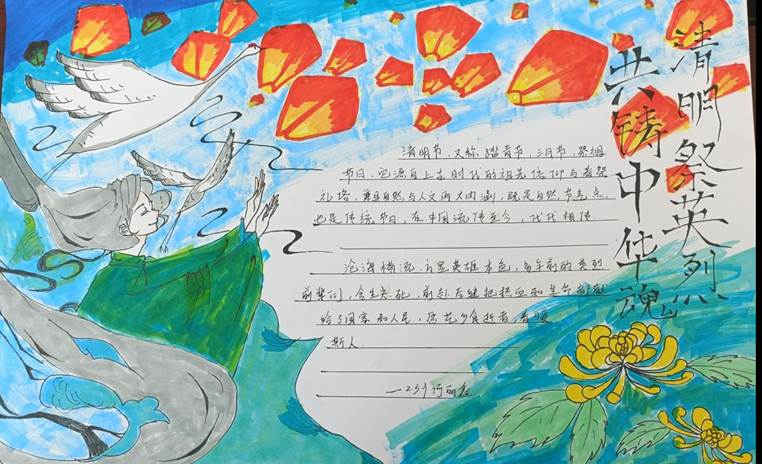 清明祭英烈
共铸中华魂
清明节，又称踏青节，三月节，祭祖
节日，它源自上古时代的祖先信仰与春祭
礼俗，兼具自然与人文两大内涵，既是自然节气点，
也是传统节日，在中国流传至今，代代相传
沧海横流，方显英雄本色，多年前的英烈
前辈们，舍生忘死，前赴后继把热血和生命都献
给了国家和人民，
斯人